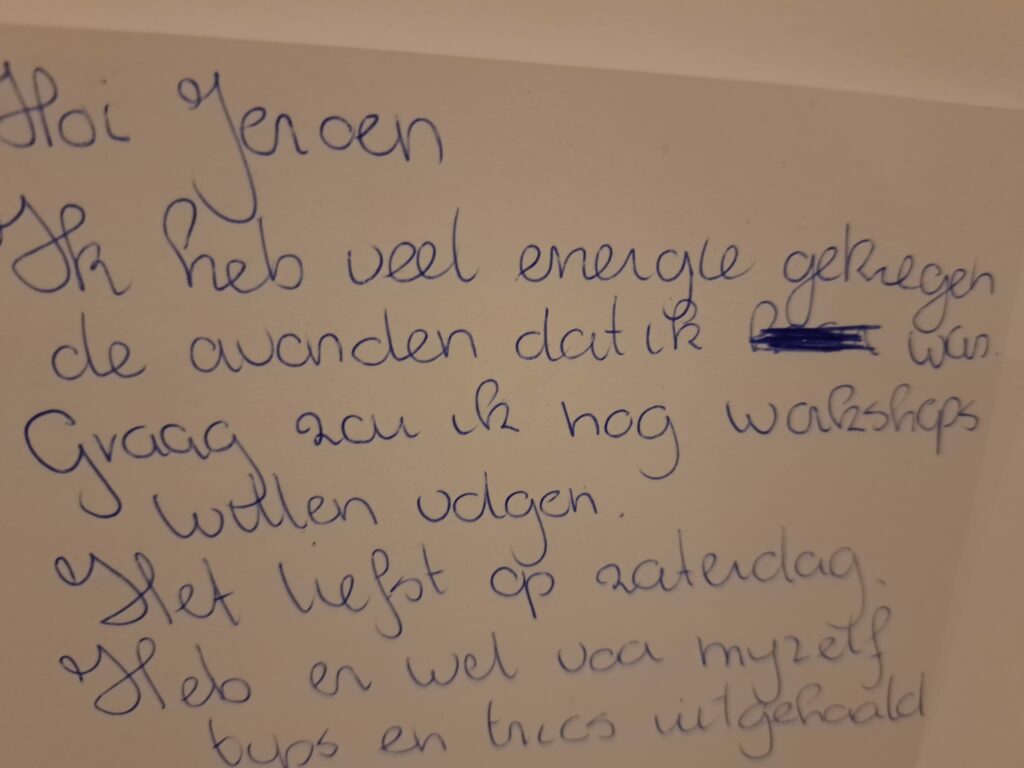 Hoi Jeroen
Ik heb veel energie gekregen
de avonden dat ik was.
Graag zou ik nog workshops
willen volgen.
Het liefst op zaterdag.
Heb er wel voor myzelf
typs en trics uitgehaald